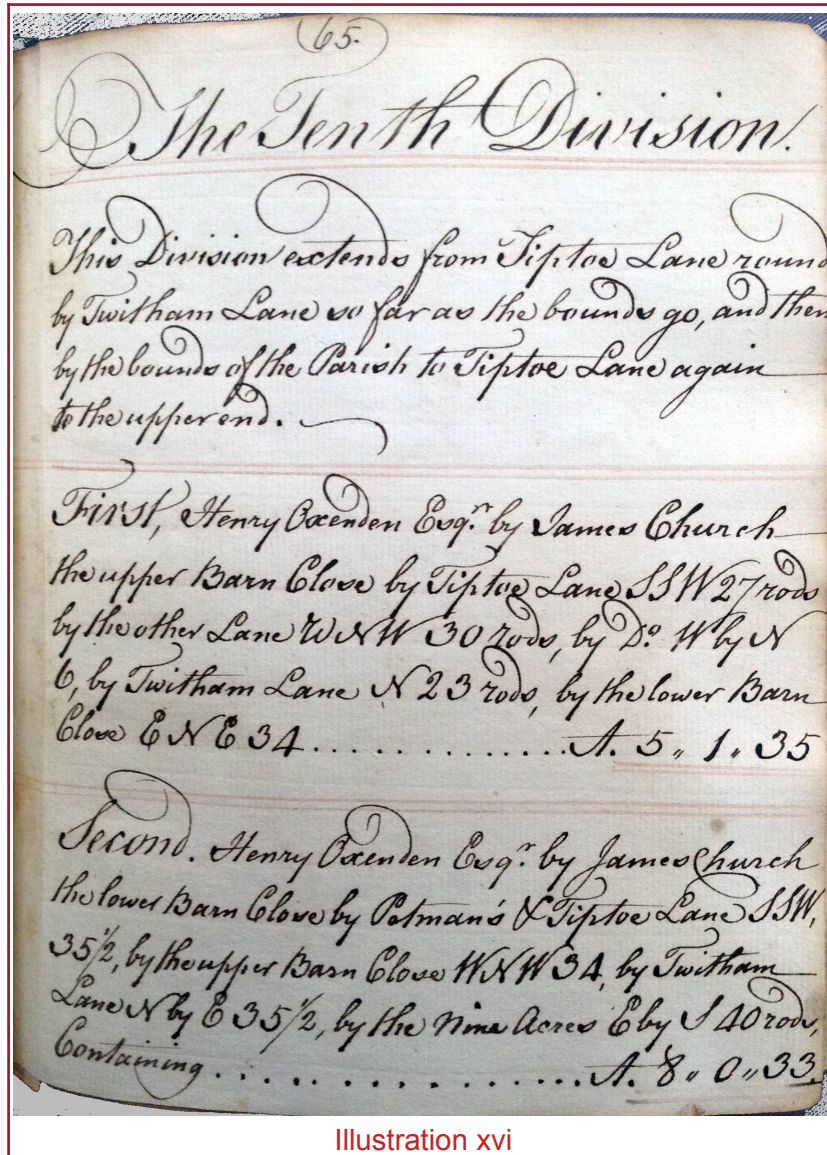 65.
The Tenth Division.
This Division extends from Tiptoe Lane round
by Twitham Lane so far as the bounds go, and then
by the bounds of the Parish to Tiptoe Lane again
to the upper end.
First, Henry Oxenden Esqr. by James Church
the upper Barn Close by Tiptoe Lane SSW 27 rods
by the other Lane WNW 30 rods, by Do. W by N
6, by Twitham Lane N 23 rods, by the lower Barn
Close ENE 34..............A. 5 „ 1 „ 35
Second. Henry Oxenden Esqr. by James Church
the lower Barn Close by Petman's & Tiptoe Lane SSW,
35 1/2, by the upper Barn Close WNW 34, by Twitham
Lane N by E 35 1/2, by the Nine Acres E by S 40 rods,
Containing.................A. 8 „ 0 „ 33.
Illustration xvi